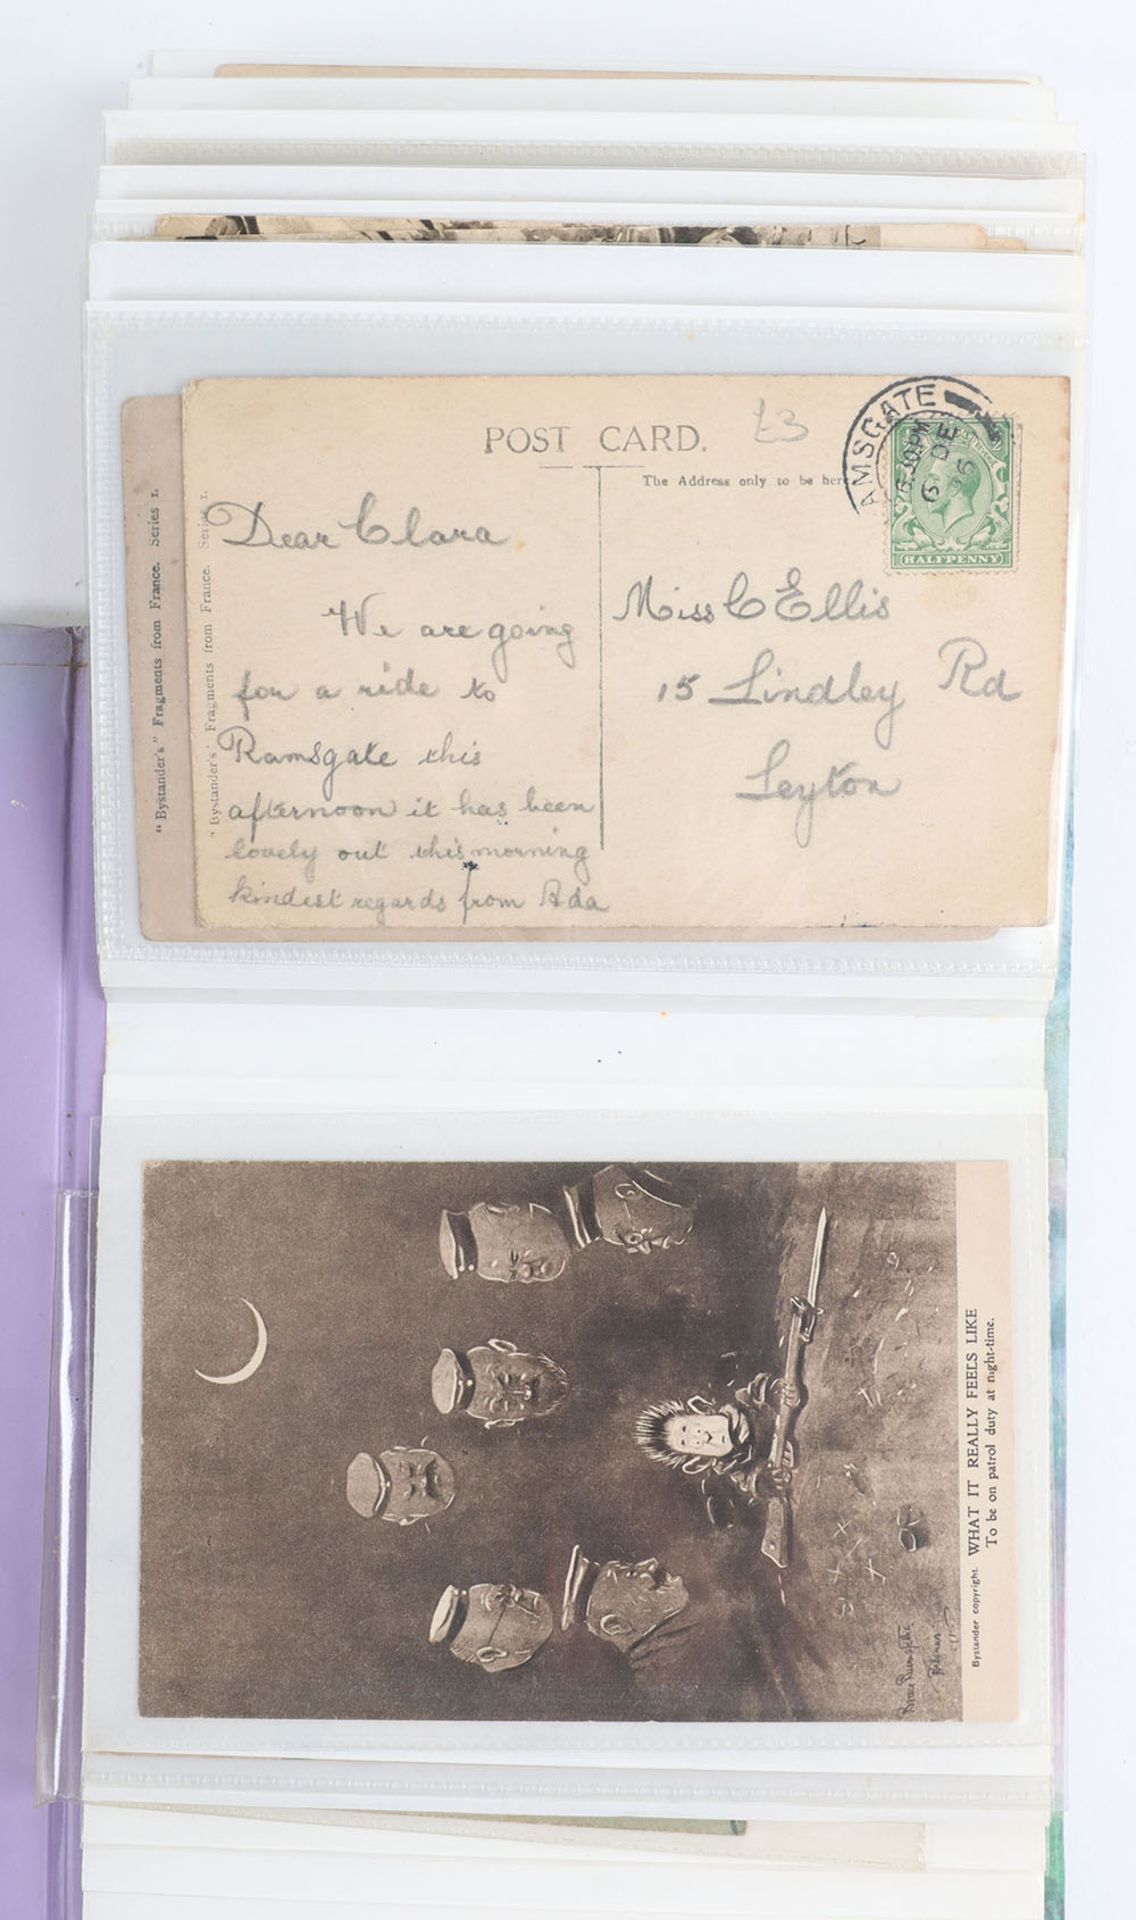 POST CARD.
£3
The Address only to be her
AMSGATE
6.30PM
6 DE
16
HALFPENNY
"Bystander's" Fragments from France. Series 1.
"Bystander's" Fragments from France. Series 1.
Dear Clara
We are going
for a ride to
Ramsgate this
afternoon it has been
lovely out this morning
kindest regards from Ada
Miss C Ellis
15 Lindley Rd
Leyton
Bruce Bairnsfather
Bystander copyright. WHAT IT REALLY FEELS LIKE
To be on patrol duty at night-time.